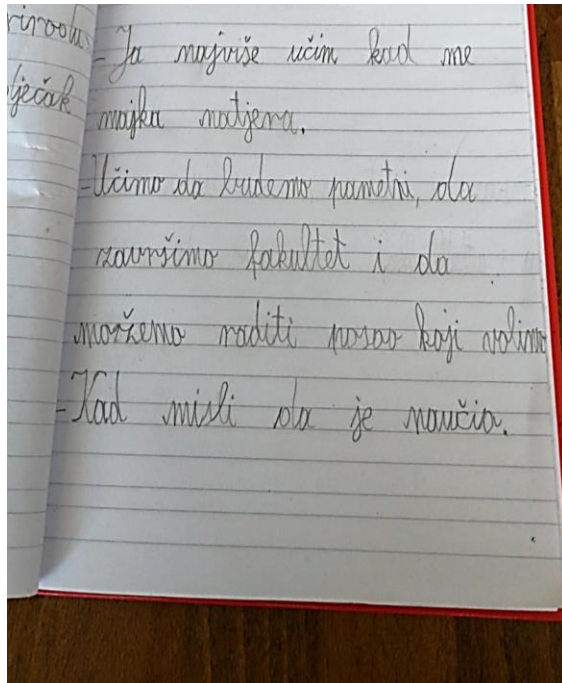 - Ja najviše učim kad me
majka natjera.
- Učimo da budemo pametni, da
završimo fakultet i da
možemo raditi posao koji volimo
- Kad misli da je naučio.